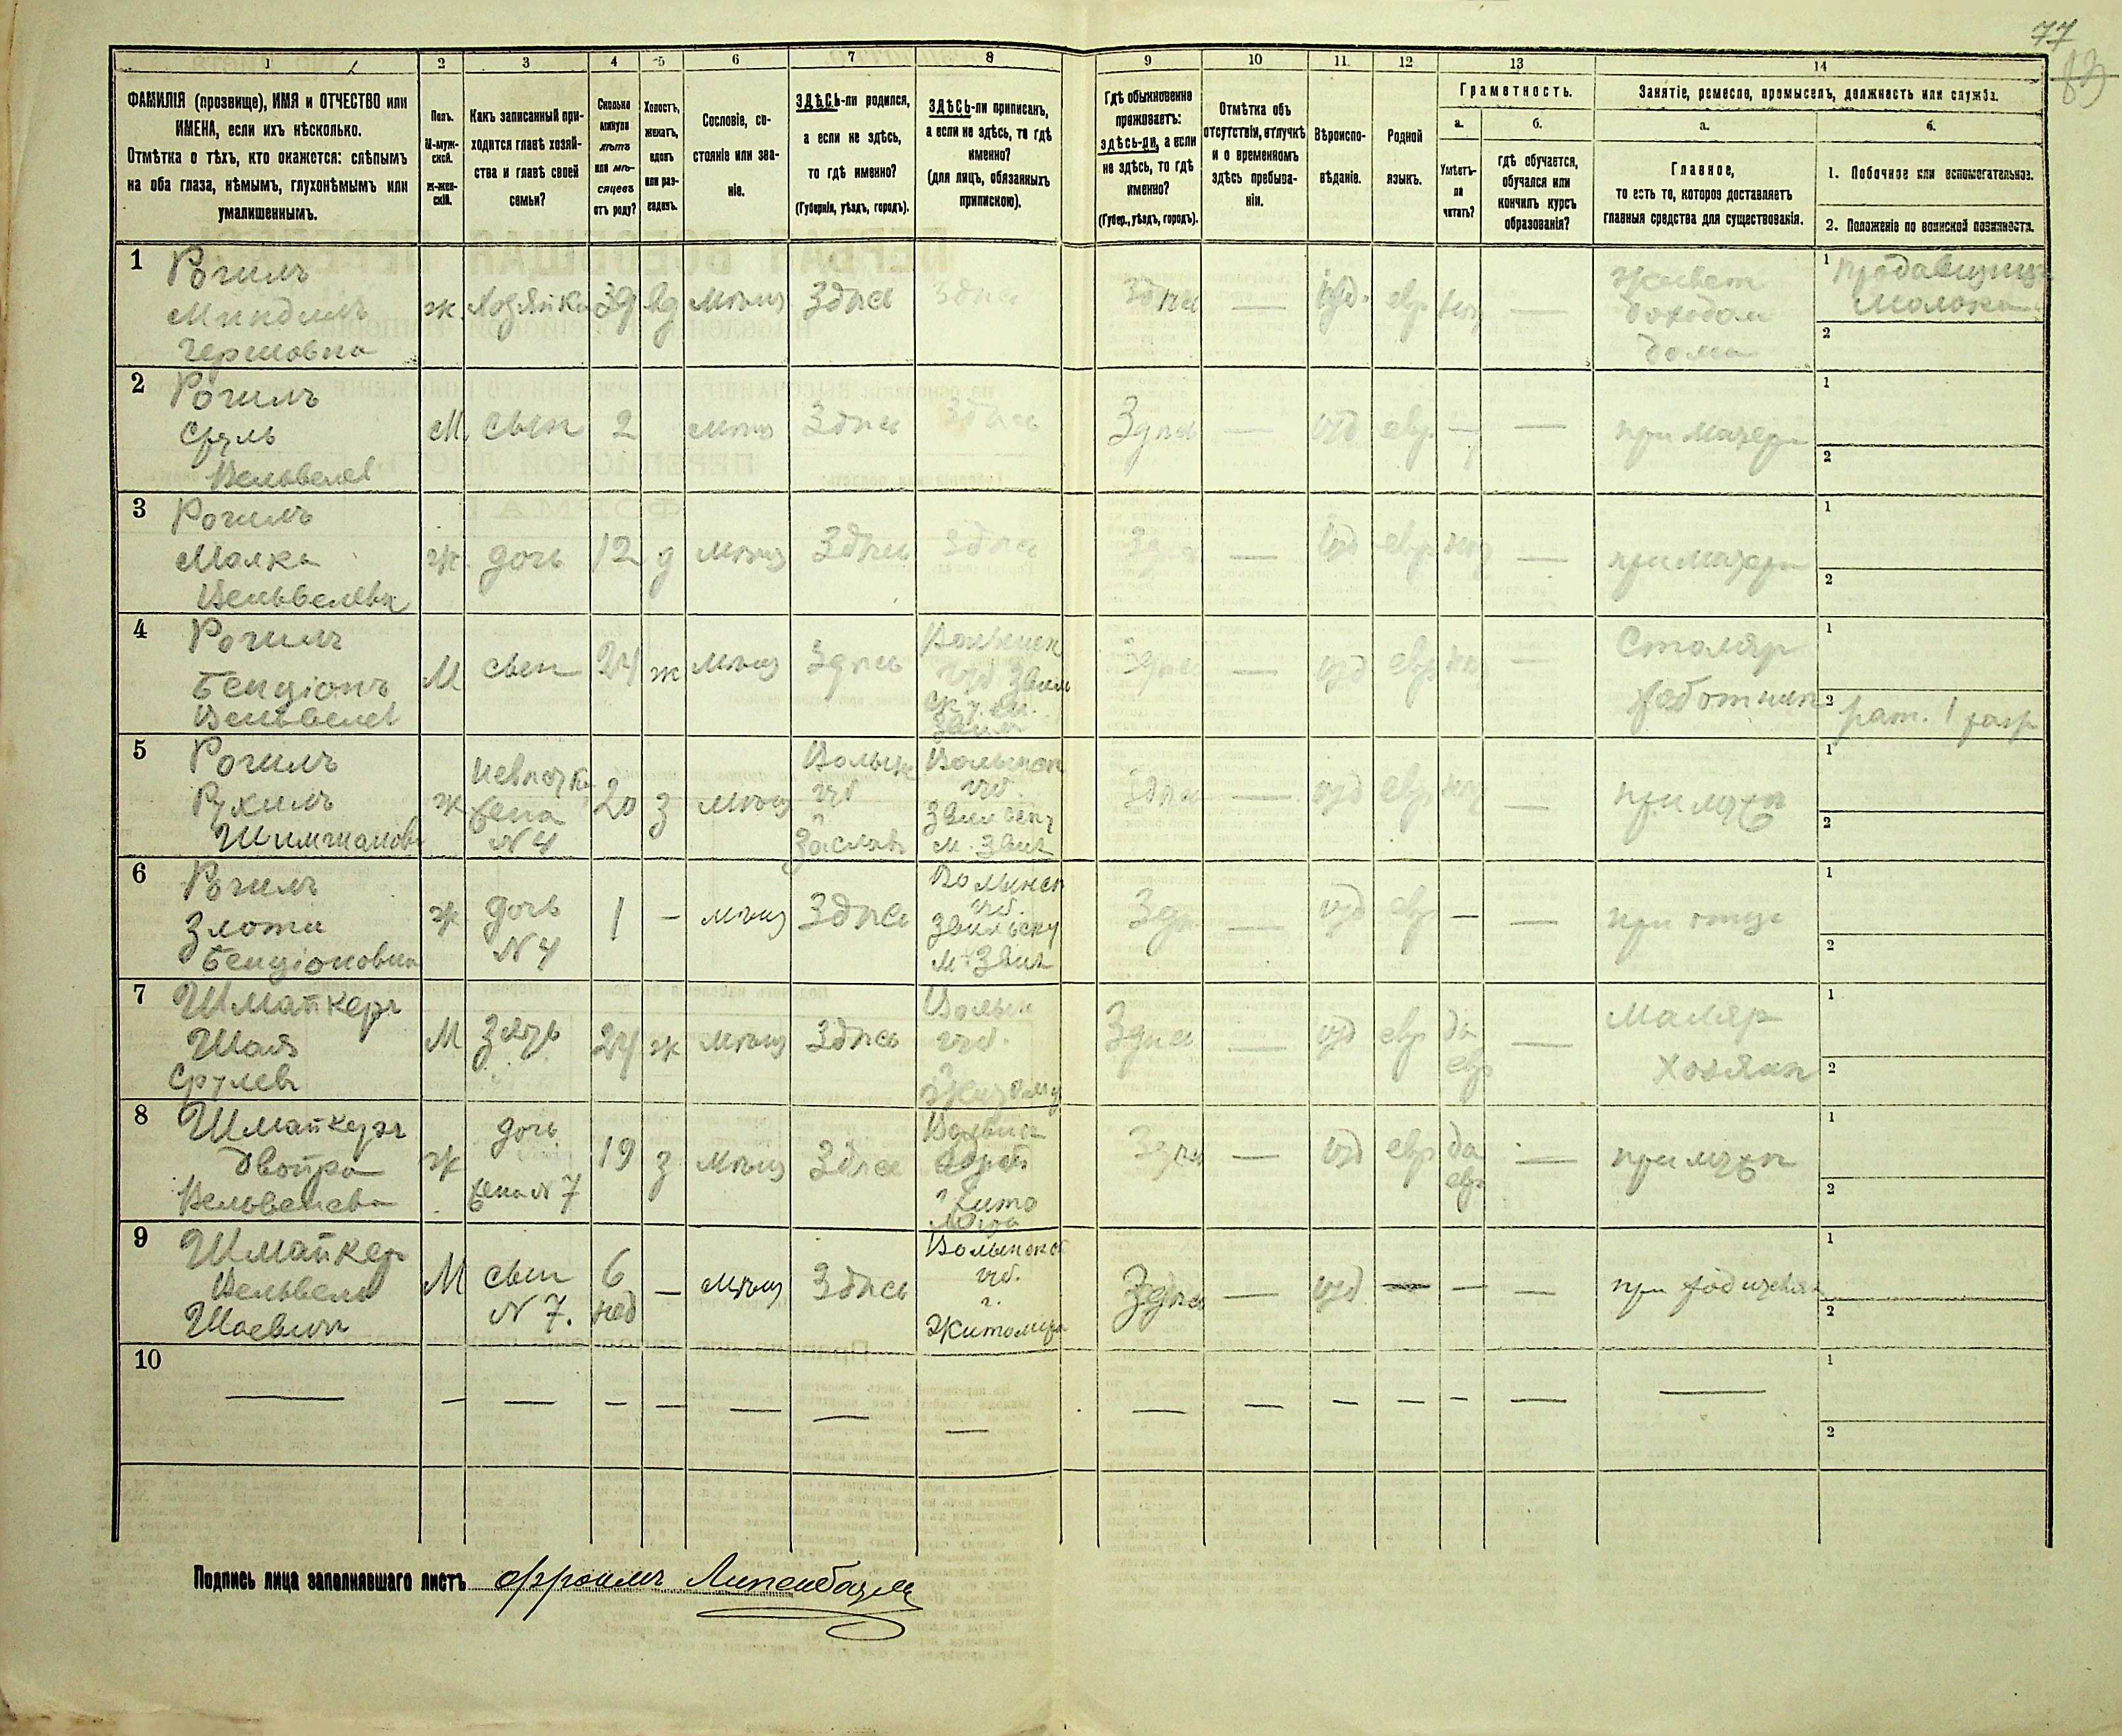 77
83
1 2 3 4 5 6 7 8 9 10 11 12 13 14
ФАМИЛІЯ (прозвище), ИМЯ и ОТЧЕСТВО или
ИМЕНА, если ихъ нѣсколько.
Отмѣтка о тѣхъ, кто окажется: слѣпымъ
на оба глаза, нѣмымъ, глухонѣмымъ или
умалишеннымъ.
Полъ.
М-муж-
ской.
ж-жен-
скій.
Какъ записанный при-
ходится главѣ хозяй-
ства и главѣ своей
семьи?
Сколько
минуло
лѣтъ
или мѣ-
сяцевъ
отъ роду?
Холостъ,
женатъ,
вдовъ
или раз-
веденъ.
Сословіе, со-
стояніе или зва-
ніе.
ЗДѢСЬ-ли родился,
а если не здѣсь,
то гдѣ именно?
(Губернія, уѣздъ, городъ).
ЗДѢСЬ-ли приписанъ,
а если не здѣсь, то гдѣ
именно?
(для лицъ, обязанныхъ
припискою).
Гдѣ обыкновенно
проживаетъ:
здѣсь-ли, а если
не здѣсь, то гдѣ
именно?
(Губер., уѣздъ, городъ).
Отмѣтка объ
отсутствіи, отлучкѣ
и о временномъ
здѣсь пребыва-
ніи.
Вѣроиспо-
вѣданіе.
Родной
языкъ.
Грамотность.
а.
Умѣетъ-
ли
читать?
б.
гдѣ обучается,
обучался или
кончилъ курсъ
образованія?
Занятіе, ремесло, промыселъ, должность или служба.
а.
Главное,
то есть то, которое доставляетъ
главныя средства для существованія.
б.
1. Побочное или вспомогательное.
2. Положеніе по воинской повинности.
1 Рогиль
Миндель
Гершовна
ж Хозяйка 39 вд мѣщ Здѣсь Здѣсь Здѣсь — іуд. евр. нѣт —
Живет
доходом
дома
1 продавщица
молока
2
2 Рогиль
Сруль
Вельвелев
М. сын 2 мѣщ Здѣсь Здѣсь Здѣсь — іуд евр. — — при матери
1
2
3 Рогиль
Малка
Вельвелевн
ж. дочь 12 д мѣщ Здѣсь Здѣсь Здѣсь — іуд евр нѣт — при матери
1
2
4 Рогиль
Бенціонъ
Вельвелев
М сын 24 ж мѣщ Здѣсь
Волынск
губ Звяг
Здѣсь — іуд евр —
Столяр
работник
1
2 рат. 1 разр
5 Рогиль
Рухиль
ж невѣстка
жена
№ 4
20 з мѣщ
Волын
губ
г
Заслав
Волынск
губ.
іуд евр — при мужѣ
1
2
6 Рогиль
Злота
Бенціоновна
ж дочь
№ 4
1 — мѣщ Здѣсь
Волынск
губ.
Здѣсь — іуд евр — — при отце
1
2
7 Шмайкеръ
Шая
Срулев
М Зять 24 ж мѣщ Здѣсь
Волын
губ.
г
Житомир
Здѣсь — іуд евр да
евр
—
Маляр
Хозяин
1
2
8 Шмайкеръ
Двойра
Вельвелева
ж дочь
жена № 7
19 з мѣщ Здѣсь
Здѣсь — іуд евр да
евр
— при мужѣ
1
2
9 Шмайкер
Вельвель
Шаевич
М сын
№ 7.
6
нед
— мѣщ Здѣсь
Волынской
губ.
г.
Житомира
Здѣсь — іуд — — — при родителях
1
2
10 — — — — — — — — — — — — — — —
1
2
Подпись лица заполнявшаго листъ